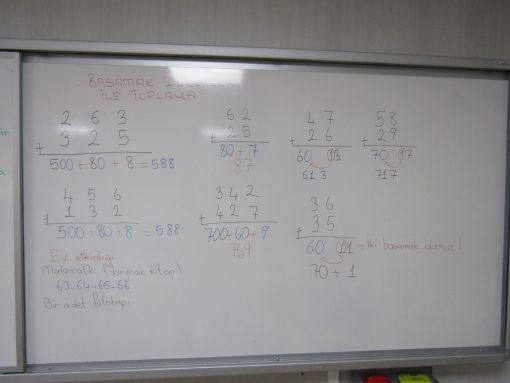 BASAMAK
İLE TOPLAMA
2 6 3
3 2 5
+
500 + 80 + 8 = 588
6 2
2 5
+
80 + 7
87
4 7
2 6
+
60 13
61 3
5 8
2 9
+
70 17
71 7
4 5 6
1 3 2
+
500 + 80 + 8 = 588
3 4 2
4 2 7
+
700 + 60 + 9
769
3 6
3 5
+
60 11 → İki basamak olamaz!
70 + 1
Ev etkinliği
Matematik (kaynak kitap)
63-64-65-66
Bir adet fotokopi